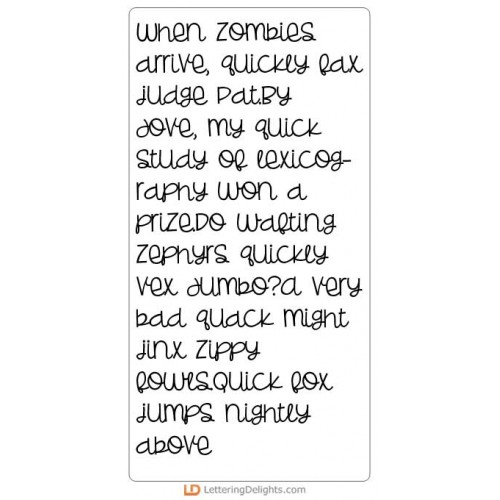 When zombies
arrive, quickly fax
judge Pat.By
Jove, my quick
study of lexicog-
raphy won a
prize.Do wafting
zephyrs quickly
vex Jumbo?A very
bad quack might
jinx zippy
fowls.Quick fox
jumps nightly
above
LD LetteringDelights.com